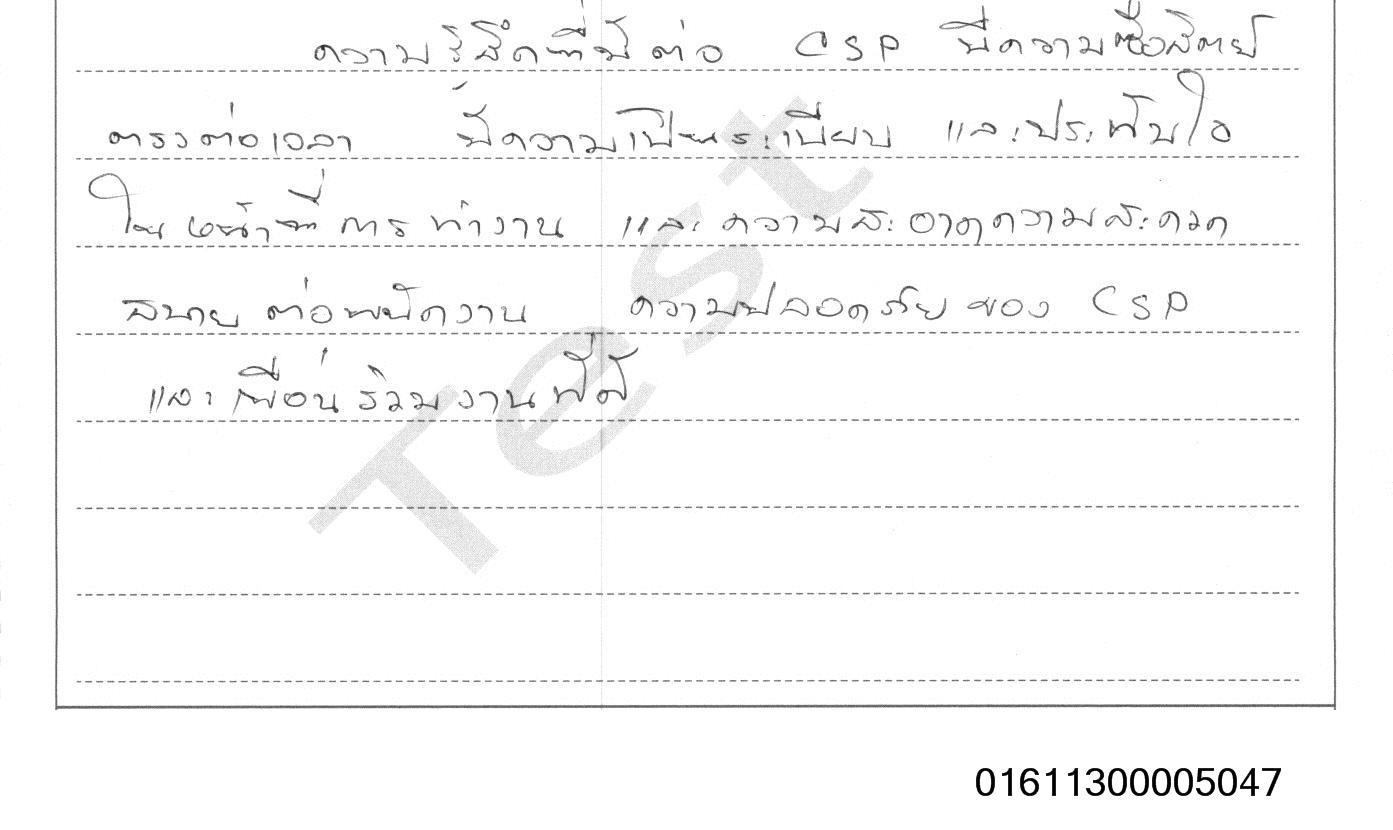 ความรู้สึกที่มีต่อ CSP มีความซื่อสัตย์
ตรงต่อเวลา มีความเป็นระเบียบ และประทับใจ
ในหน้าที่การทำงาน และความสะอาดความสะดวก
สบายต่อพนักงาน ความปลอดภัยของ CSP
และเพื่อนร่วมงานที่ดี
Test
01611300005047